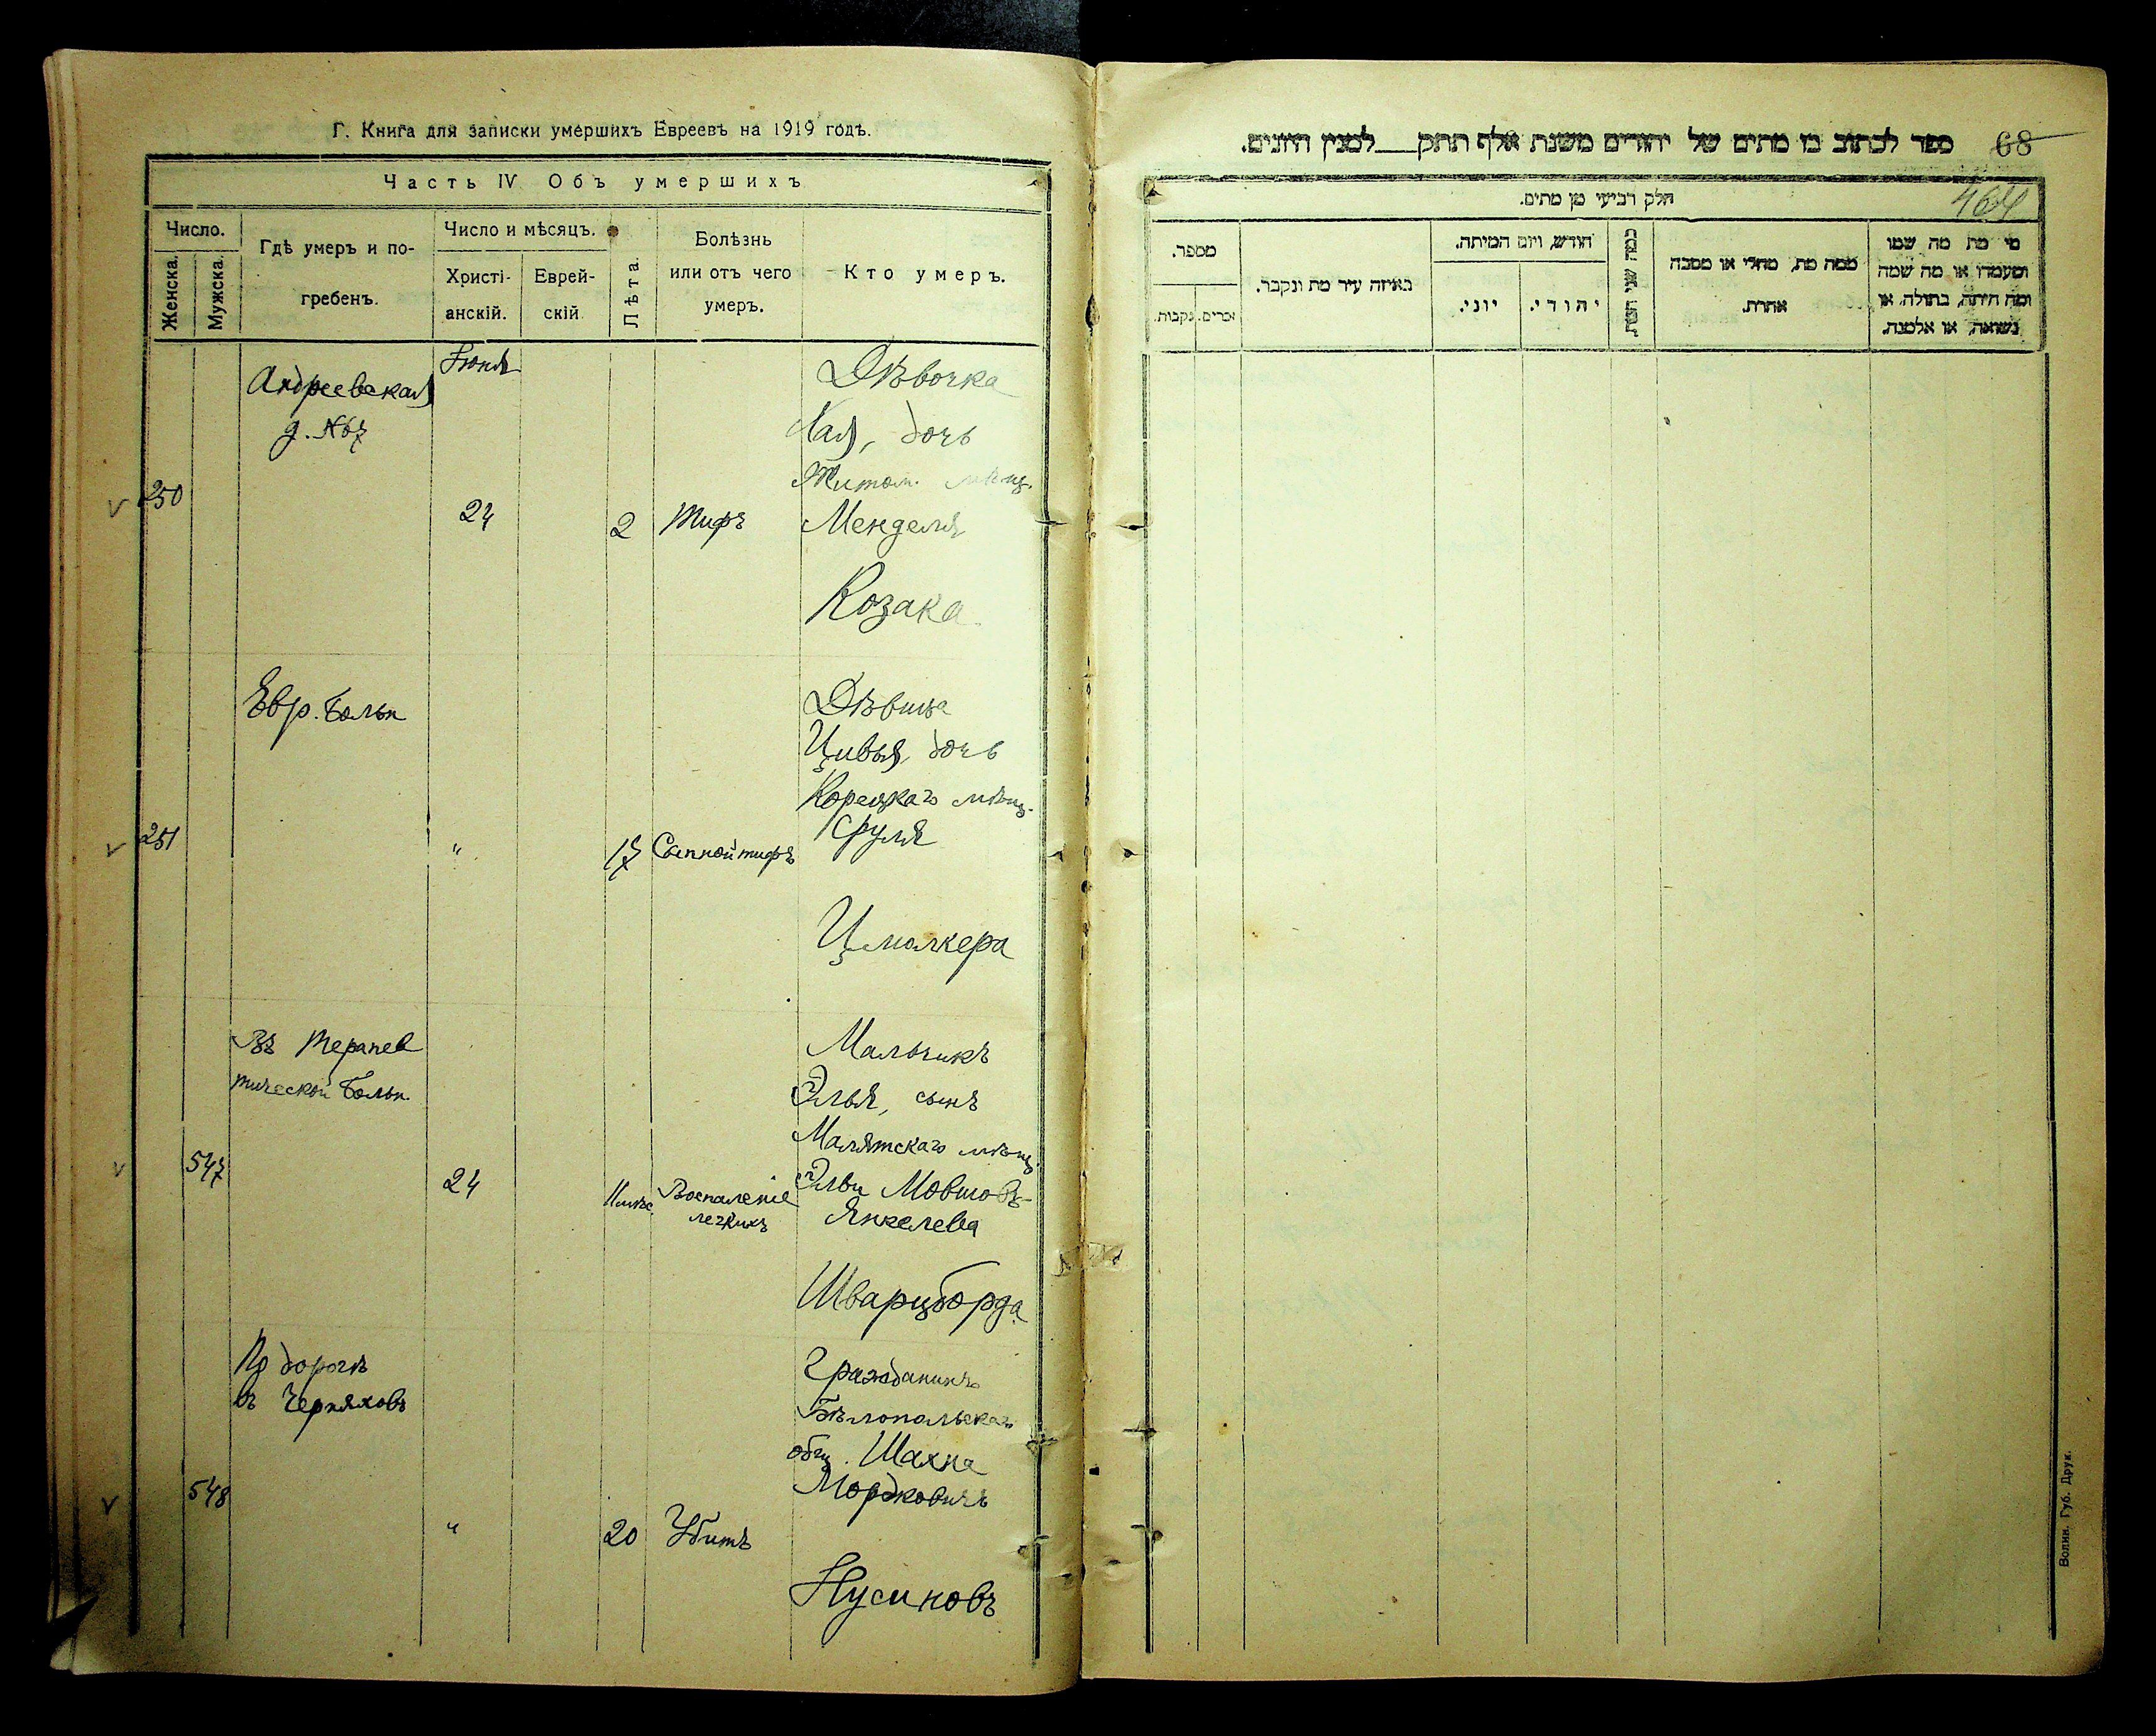 Г. Книга для записки умершихъ Евреевъ на 1919 годъ.
Часть IV Объ умершихъ
Число.
Женска.
Мужска.
Гдѣ умеръ и по-
гребенъ.
Число и мѣсяцъ.
Христі-
анскій.
Еврей-
скій
Лѣта.
Болѣзнь
или отъ чего
умеръ.
Кто умеръ.
250
Андреевская
д. №67
Іюня
24
2
Тифъ
Дѣвочка
Хая, дочь
Житом. мѣщ.
Менделя
Козака
251
Евр. больн
"
17
Сыпной тифъ
Дѣвица
Цивья, дочь
Корецкаго мѣщ.
Сруля
Цмолкера
547
Въ терапев
тической больн.
24
Воспаленіе
легкихъ
Мальчикъ
Элья, сынъ
Малятскаго мѣщ.
Эльи Мовшовъ-
Янкелева
Шварцборда
548
По дорогѣ
въ Черняховъ
"
20
Убитъ
Гражданинъ
Бѣлопольскаго
общ. Шахна
Мордковичъ
Нусиновъ
68
ספר לכתוב בו מתים של יהודים משנת אלף תתק למנין היונים.
464
חלק רביעי מן מתים.
מספר.
זכרים.
נקבות.
באיזה עיר מת ונקבר.
חודש, ויום המיתה.
יוני.
יהודי.
ממה מת, מחלי או מסבה
אחרת.
מי מת מה שמו
ומעמדו או מה שמה
ומה היתה, בתולה, או
נשואה, או אלמנה.
Волин. Губ. Друк.